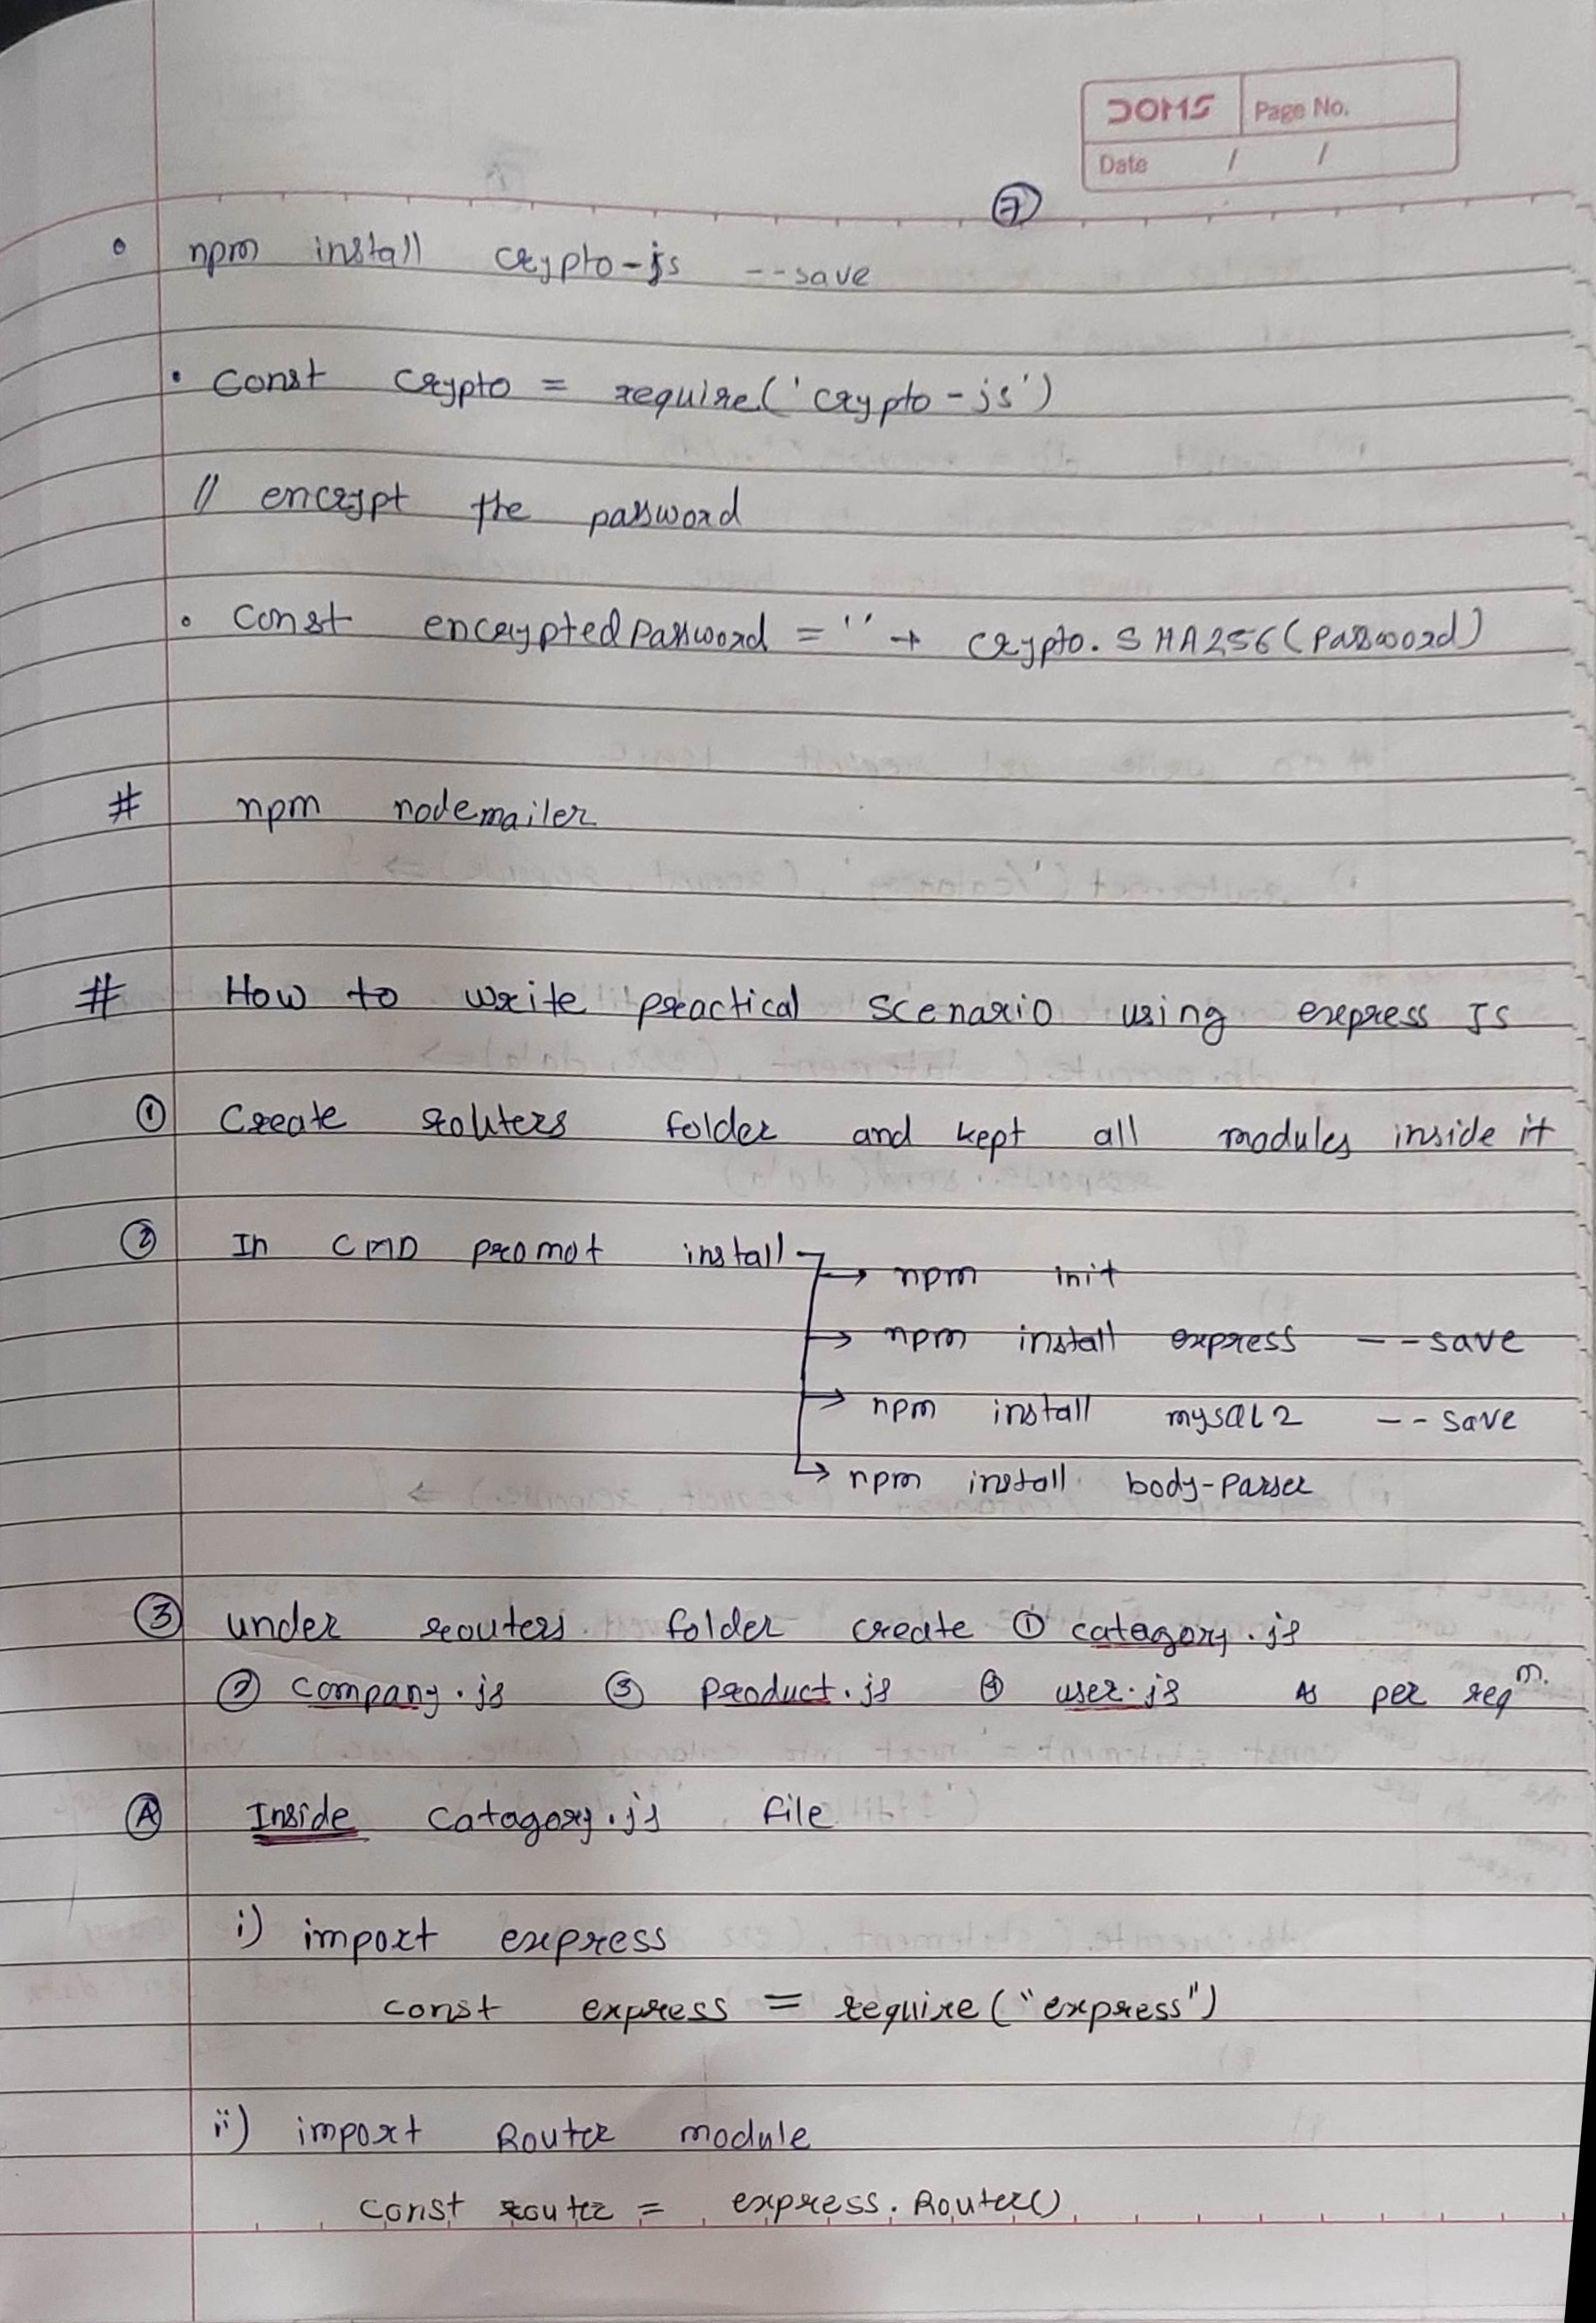 DOMS Page No.
Date / /
7
npm install crypto-js --save
• const crypto = require('crypto-js')
// encrypt the password
• const encryptedpassword = '' + crypto.SHA256(password)
# npm nodemailer
# How to write practical scenario using express Js
① Create routers folder and kept all modules inside it
② In CMD promot install → npm init
→ npm install express --save
→ npm install mysql2 --save
→ npm install body-parser
③ under routers folder create ① catagory.js
② company.js ③ product.js ④ user.js As per reqm.
Ⓐ Inside catagory.js file
i) import express
const express = require("express")
ii) import Router module
const router = express.Router()